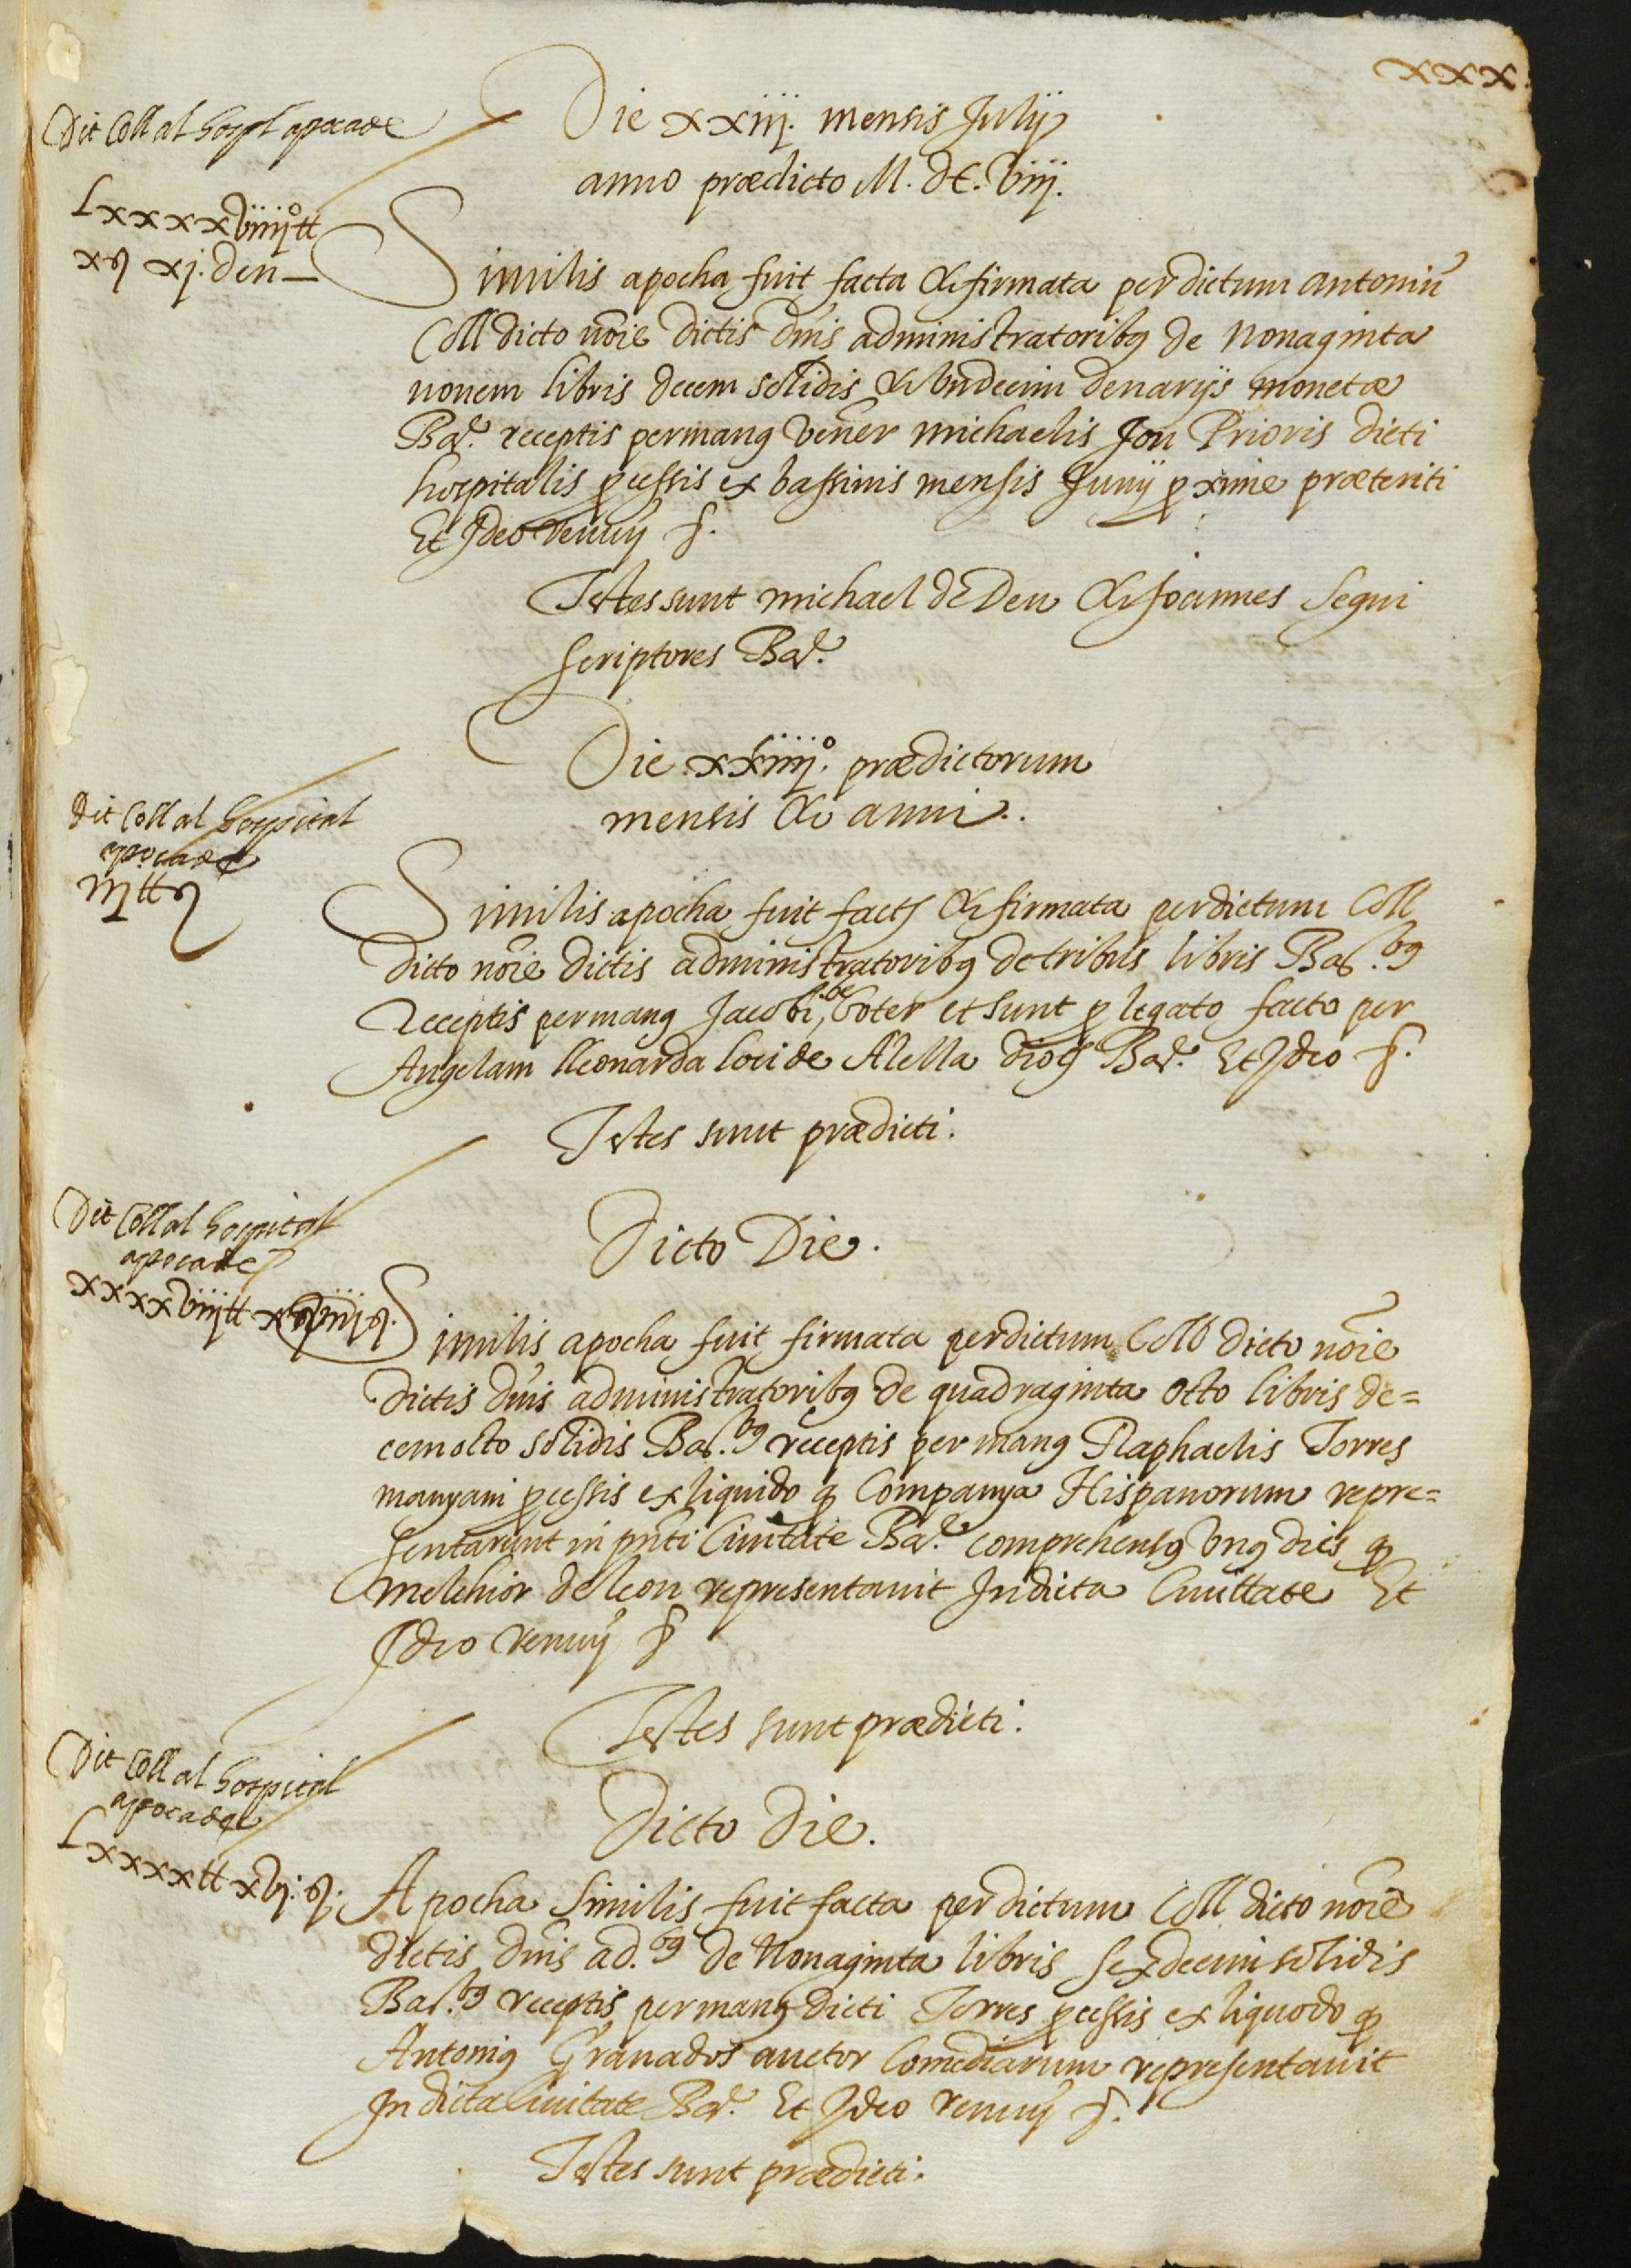 xxx.
Dit Coll al hospl apoca de
Lxxxxviiijº tt
x s xj. den
Die xxiij. mensis Julij
anno prædicto M. DC. Viiij.
Similis apocha fuit facta & firmata per dictum antoniũ
Coll dicto nõie dictis dñis administratoribꝯ de nonaginta
novem libris decem solidis & undecim denarijs monetæ
Bar. receptis per manꝯ vener michaelis Prioris dicti
hospitalis ꝓcessis ex bassinis mensis Junij ꝓxime præteriti
Et Ideo renũ &.
Testes sunt michael de Deu & Joannes Segui
scriptores Bar.
Die xxiiijº. prædictorum
mensis & anni.
Dit Coll al hospital
apoca de
iij tt s
Similis apocha fuit facta & firmata per dictum Coll
dicto nõie dictis administratoribꝯ de tribus libris Bar.bꝯ
receptis per manꝯ Jacobi, boter et sunt ꝓ legato facto per
Angelam lleonarda loci de Alella dioc Bar. Et Ideo &.
Testes sunt prædicti.
Dicto Die.
Dit Coll al hospital
apoca de
xxxxviij tt xviij s.
Similis apocha fuit firmata per dictum Coll dicto nõie
dictis dñis administratoribꝯ de quadraginta octo libris de=
cem octo solidis Bar.bꝯ receptis per manꝯ Raphaelis Torres
manyani ꝓcessis ex liquido ꝙ Companya Hispanorum repre=
sentarunt in pñti Civitate Bar. comprehensꝯ unꝯ dies ꝙ
Melchior de leon representavit In dicta Civittate Et
Ideo renũ &
Testes sunt prædicti.
Dicto Die.
Dit Coll al hospital
apoca de
Lxxxx tt xvj. s.
Apocha similis fuit facta per dictum Coll dicto nõie
dictis dñis ad.bꝯ de Nonaginta libris sexdecim solidis
Bar.bꝯ receptis per manꝯ dicti Torres ꝓcessis ex liquodo ꝙ
Antoniꝯ Granados auctor Comediarum representavit
In dicta Civitate Bar. Et Ideo renũ &.
Testes sunt prædicti.